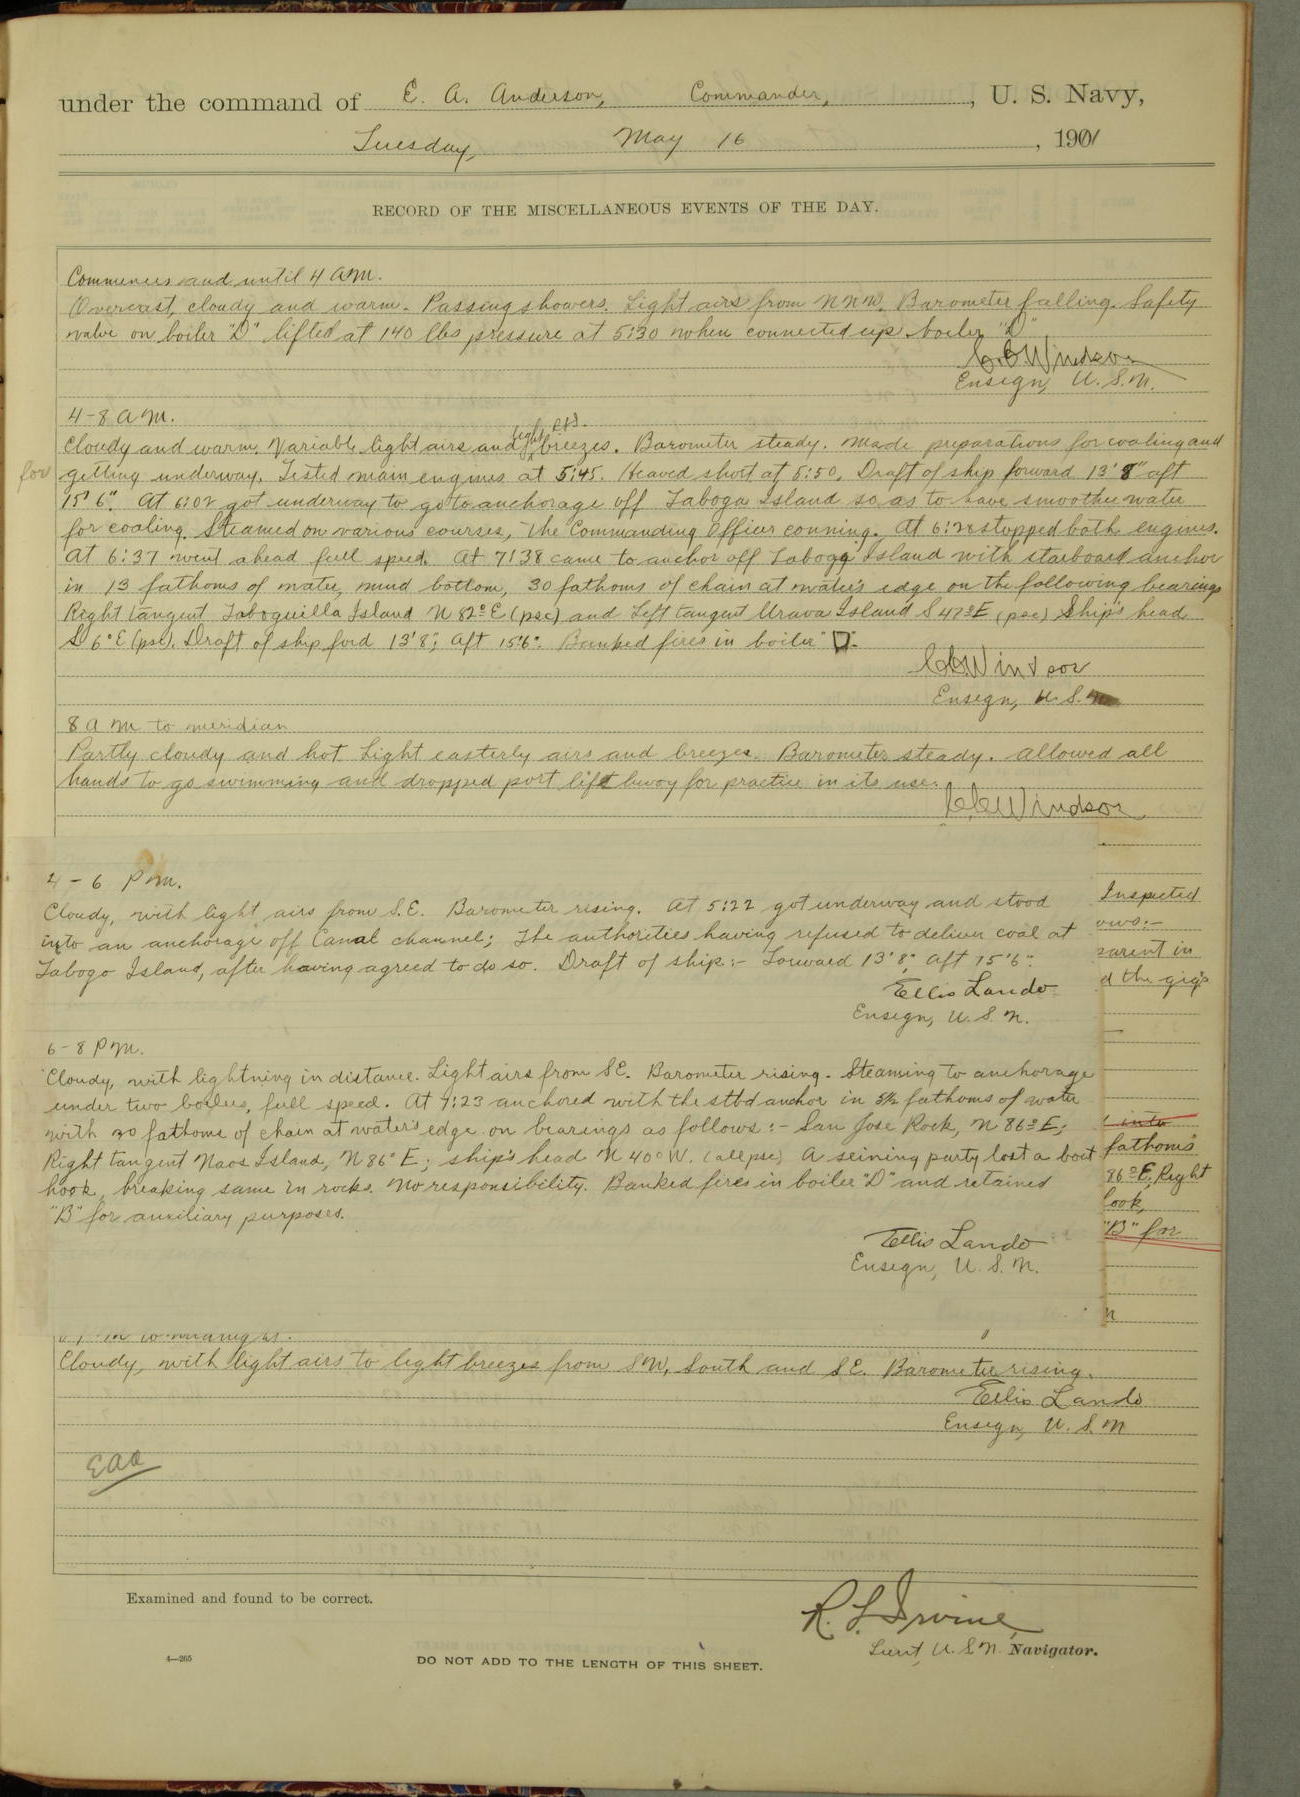 under the command of E. A. Anderson, Commander, , U. S. Navy,
Tuesday, May 16 , 1901
RECORD OF THE MISCELLANEOUS EVENTS OF THE DAY.
Commences and until 4 AM.
Overcast, cloudy and warm. Passing showers. Light airs from NNW. Barometer falling. Safety
valve on boiler "D" lifted at 140 lbs pressure at 5:30 when connected up boiler "D"
C.C. Windsor
Ensign, U. S. N.
4-8 A M.
Cloudy and warm. Variable light airs and light breezes. Barometer steady. Made preparations for coaling and
for getting underway. Tested main engines at 5:45. Heaved short at 5:50. Draft of ship forward 13' 8" aft
15' 6". At 6:02 got underway to go to anchorage off Taboga Island so as to have smoother water
for coaling. Steamed on various courses, The Commanding Officer conning. At 6:28 stopped both engines.
At 6:37 went ahead full speed. At 7:38 came to anchor off Taboga Island with starboard anchor
in 13 fathoms of water, mud bottom, 30 fathoms of chain at water's edge on the following bearings
Right tangent Taboquilla Island N 82° E (psc) and Left tangent Urava Island S 47° E (psc) Ship's head
S 6° E (psc). Draft of ship ford 13' 8"; Aft 15' 6". Banked fires in boiler "D".
C.C. Windsor
Ensign, U. S. N.
8 A M to meridian
Partly cloudy and hot Light easterly airs and breezes. Barometer steady. Allowed all
hands to go swimming and dropped port life buoy for practice in its use.
C.C. Windsor
4-6 P M.
Cloudy, with light airs from S.E. Barometer rising. At 5:22 got underway and stood
into an anchorage off Canal channel; The authorities having refused to deliver coal at
Tabogo Island, after having agreed to do so. Draft of ship:- Forward 13' 8", Aft 15' 6".
Ellis Lando
Ensign, U. S. N.
Inspected
ows:-
parent in
d the gig's
6-8 P M.
Cloudy, with lightning in distance. Light airs from SE. Barometer rising. Steaming to anchorage
under two boilers, full speed. At 7:23 anchored with the stbd anchor in 5½ fathoms of water
with 30 fathoms of chain at water's edge on bearings as follows:- San Jose Rock, N 86° E;
Right tangent Naos Island, N 86° E; ship's head N 40° W. (all psc) A seining party lost a boat
hook, breaking same in rocks. No responsibility. Banked fires in boiler "D" and retained
"B" for auxiliary purposes.
Ellis Lando
Ensign, U. S. N.
into
fathoms
86° E, Right
hook,
"B" for
n
P M to midnight.
Cloudy, with light airs to light breezes from SW, South and SE. Barometer rising.
Ellis Lando
Ensign, U. S. N
EAA
Examined and found to be correct.
R. L. Irvine,
Lieut, U. S. N. Navigator.
4—265
DO NOT ADD TO THE LENGTH OF THIS SHEET.